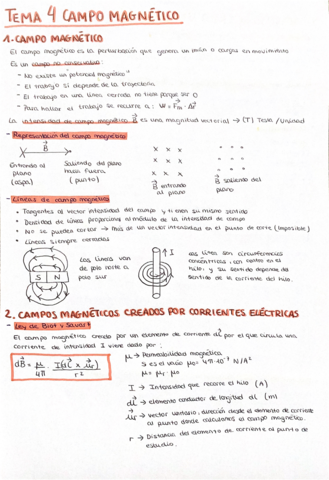 TEMA 4 CAMPO MAGNÉTICO
1. CAMPO MAGNÉTICO
El campo magnético es la perturbación que genera un imán o cargas en movimiento
Es un campo no conservativo:
- No existe un "potencial magnético"
- El trabajo sí depende de la trayectoria
- El trabajo en una línea cerrada no tiene porque ser 0
- Para hallar el trabajo se recurre a: W = F⃗m · Δr⃗
La intensidad de campo magnético B⃗ es una magnitud vectorial → (T) Tesla /Unidad
- Representación del campo magnético
B⃗
Entrando al plano (aspa)
Saliendo del plano hacia fuera (punto)
x x x
x x x
x x x
B⃗ entrando al plano
B⃗ saliendo del plano
- Líneas de campo magnético
• Tangentes al vector intensidad del campo y tienen su mismo sentido
• Densidad de líneas proporciona el módulo de la intensidad de campo
• No se pueden cortar → Más de un vector intensidad en el punto de corte (Imposible)
• Líneas siempre cerradas
S N
Las líneas van de polo norte a polo sur
I
Las líneas son circunferencias concéntricas, con centro en el hilo, y su sentido depende del sentido de la corriente del hilo.
2. CAMPOS MAGNÉTICOS CREADOS POR CORRIENTES ELÉCTRICAS
- Ley de Biot y Savart
El campo magnético creado por un elemento de corriente dl⃗ por el que circula una
corriente de intensidad I viene dado por:
dB⃗ = μ/4π · I(dl⃗ x u⃗r)/r²
μ → Permeabilidad magnética
Si es el vacío μ₀ = 4π·10⁻⁷ N/A²
μ = μr · μ₀
I → Intensidad que recorre el hilo (A)
dl⃗ → elemento conductor de longitud dl (m)
u⃗r → vector unitario, dirección desde el elemento de corriente
al punto donde calculamos el campo magnético.
r → Distancia del elemento de corriente al punto de
estudio.